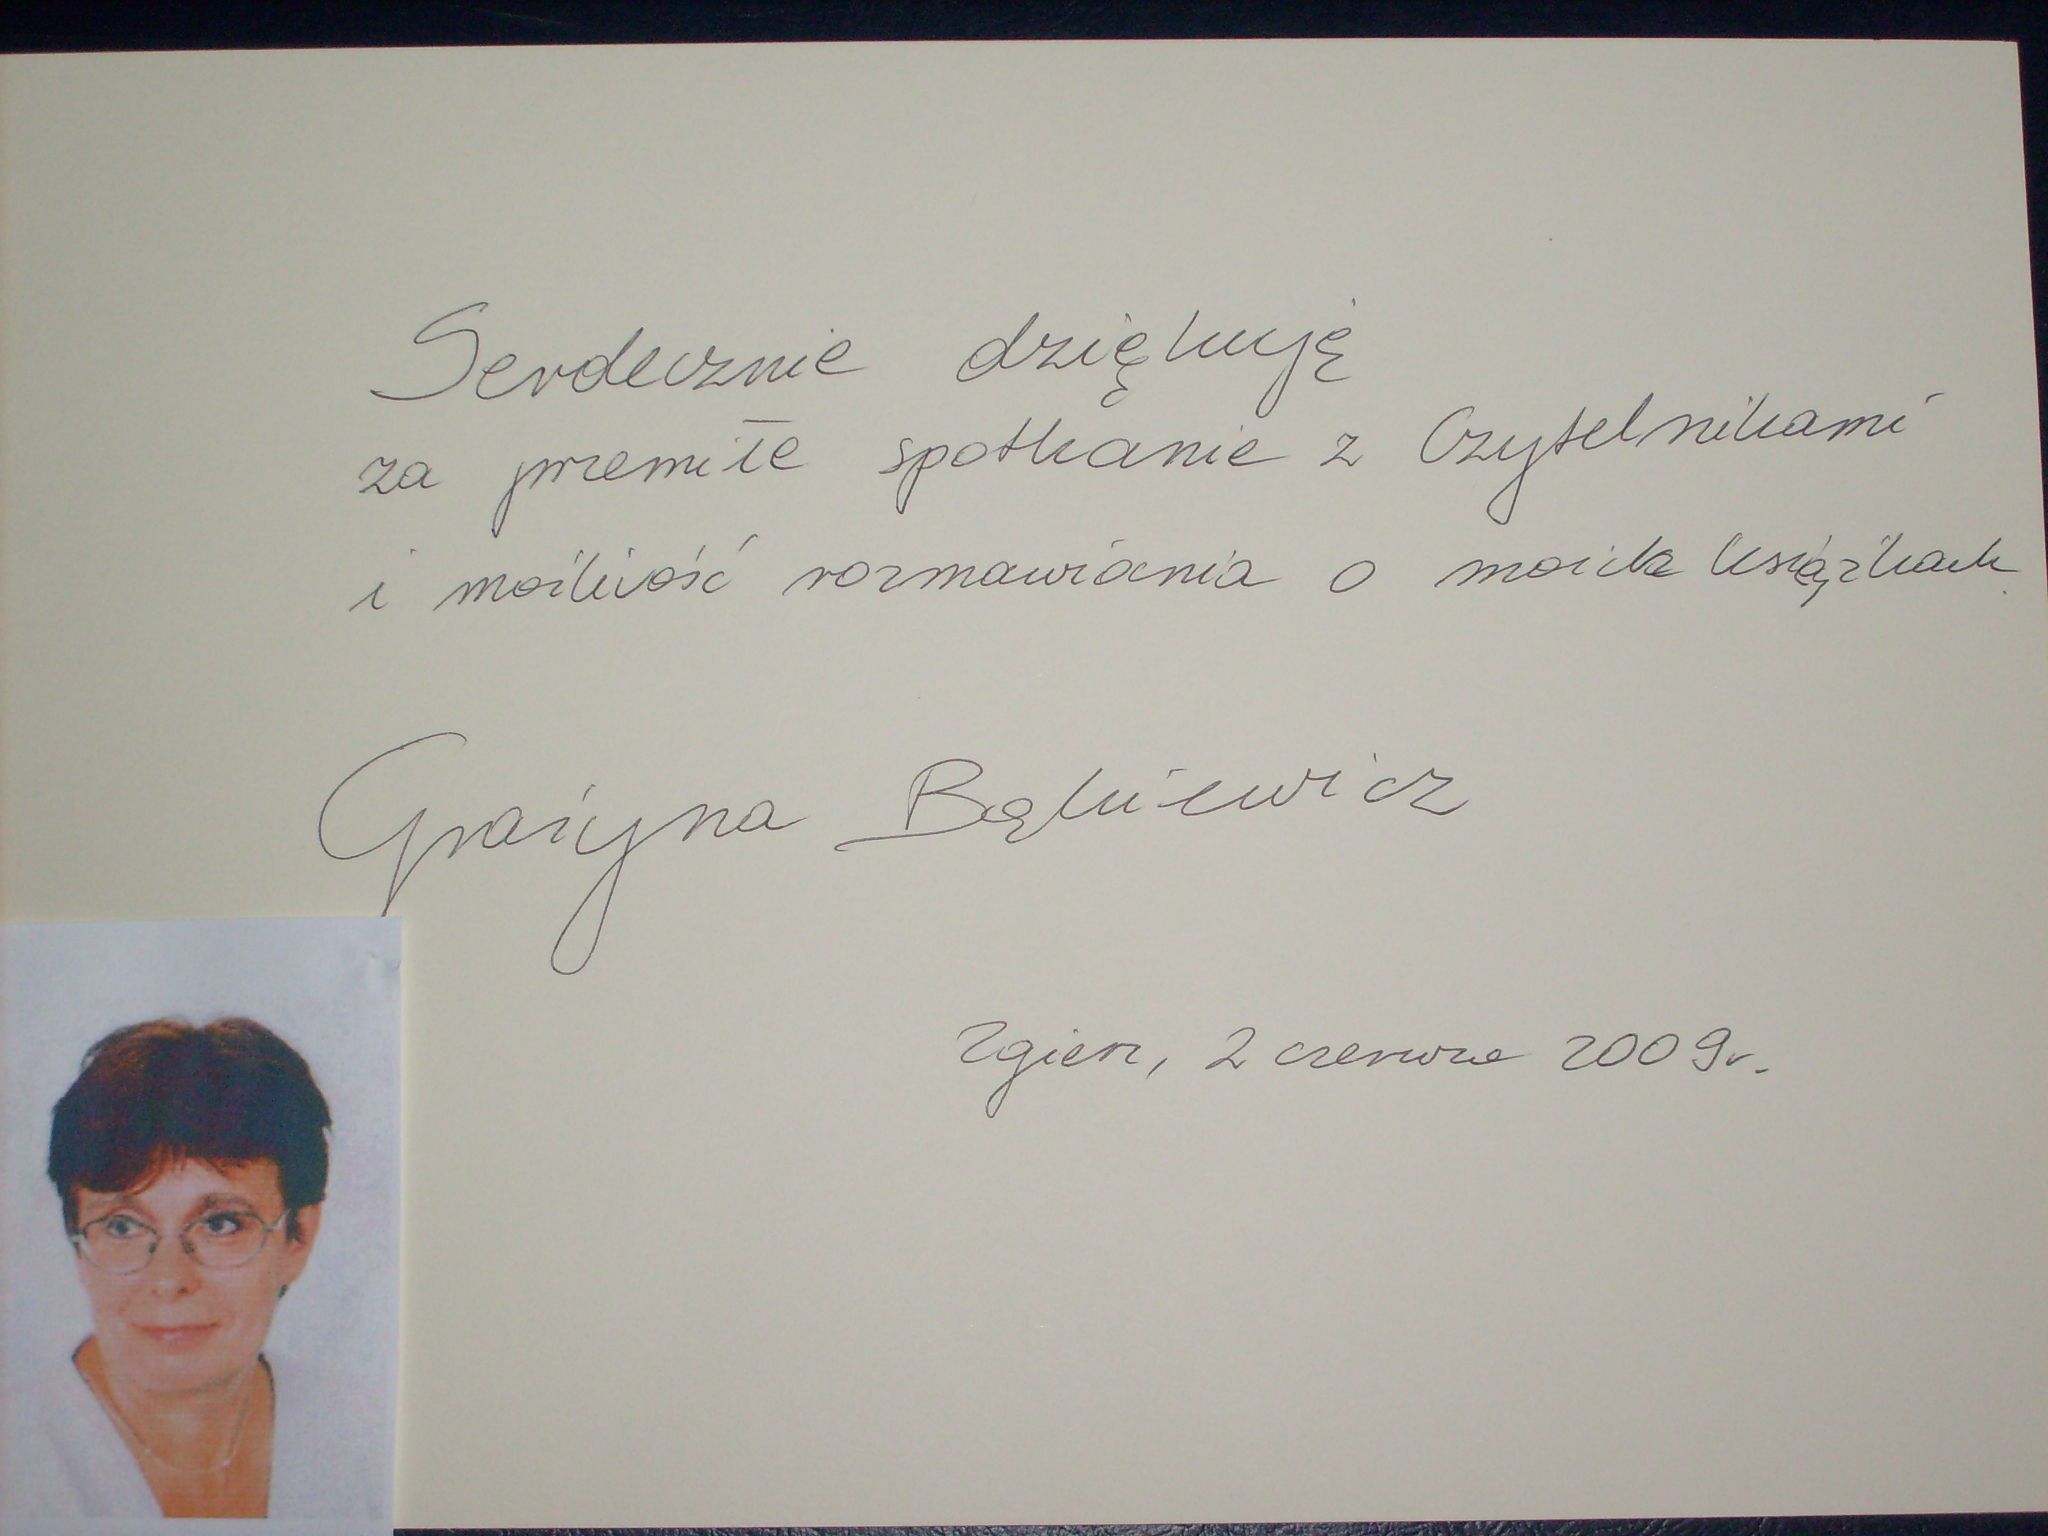 Serdecznie dziękuję
za przemiłe spotkanie z Czytelnikami
i możliwość rozmawiania o moich książkach.
Grażyna Bąkiewicz
Zgierz, 2 czerwca 2009 r.